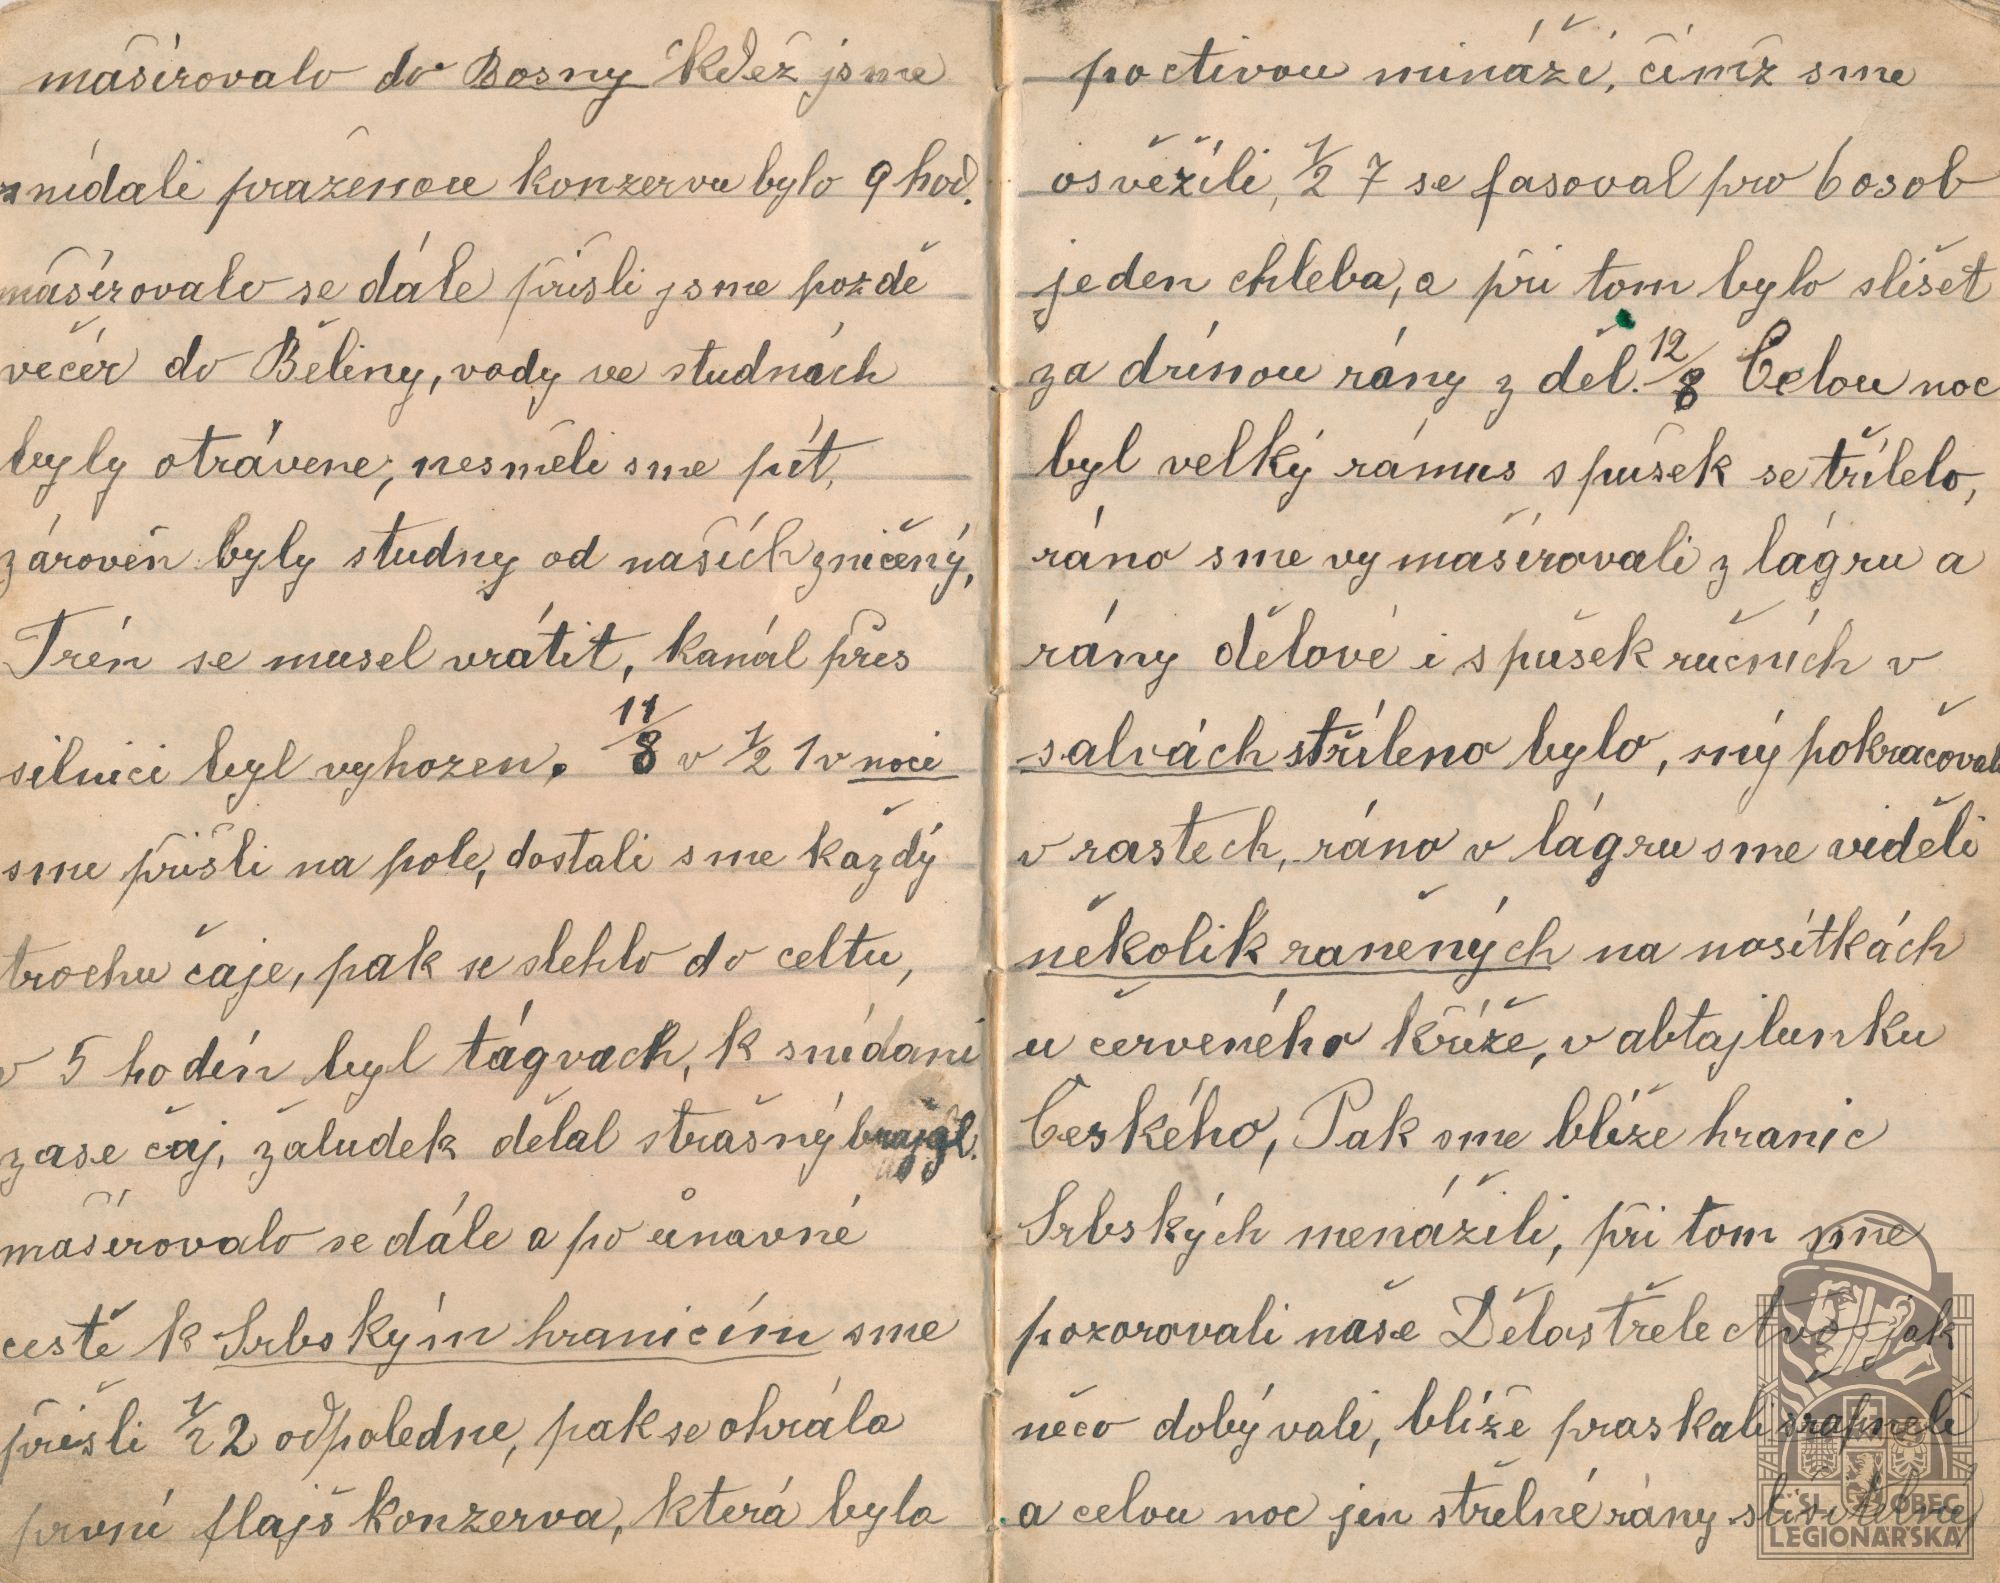 mašírovalo do Bosny kdež jsme
snídali praženou konzervu bylo 9 hod.
mašírovalo se dále přišli jsme pozdě
večér do Běliny, vody ve studnách
byly otrávene, nesměli sme pít,
zároveň byly studny od naších zničený,
Trén se musel vrátit, kanál přes
silnici byl vyhozen. 11/8 v 1/2 1 v noci
sme přišli na pole, dostali sme každý
trochu čaje, pak se slehlo do celtu,
v 5 hodín byl tágvach, k snídani
zase čaj, žaludek dělal strašný brajgl.
mašírovalo se dále a poůnavné
cestě k Srbským hranicím sme
přišli 1/2 2 odpoledne, pak se ohrála
první flajš konzerva, která byla
poctivou mináží, čímž sme
osvěžíli, 1/2 7 se fasoval pro 6 osob
jeden chleba, a při tom bylo slíšet
za drínou rány z děl. 12/8 Celou noc
byl velký rámus s pušek se třílelo,
ráno sme vymašírovali z lágru a
rány dělové i s pušek ručních v
salvách stříleno bylo, mý pokračovali
v rastech, ráno v lágru sme viděli
několik raněných na nosítkách
u červeného kříže, v abtajlunku
Českého, Pak sme blíže hranic
Srbských menážili, při tom sme
pozorovali naše Dělastřelectvo jak
něco dobývali, blíže praskali šrapneli
a celou noc jen střelné rány slišitelné
ČSL. OBEC
LEGIONÁŘSKÁ